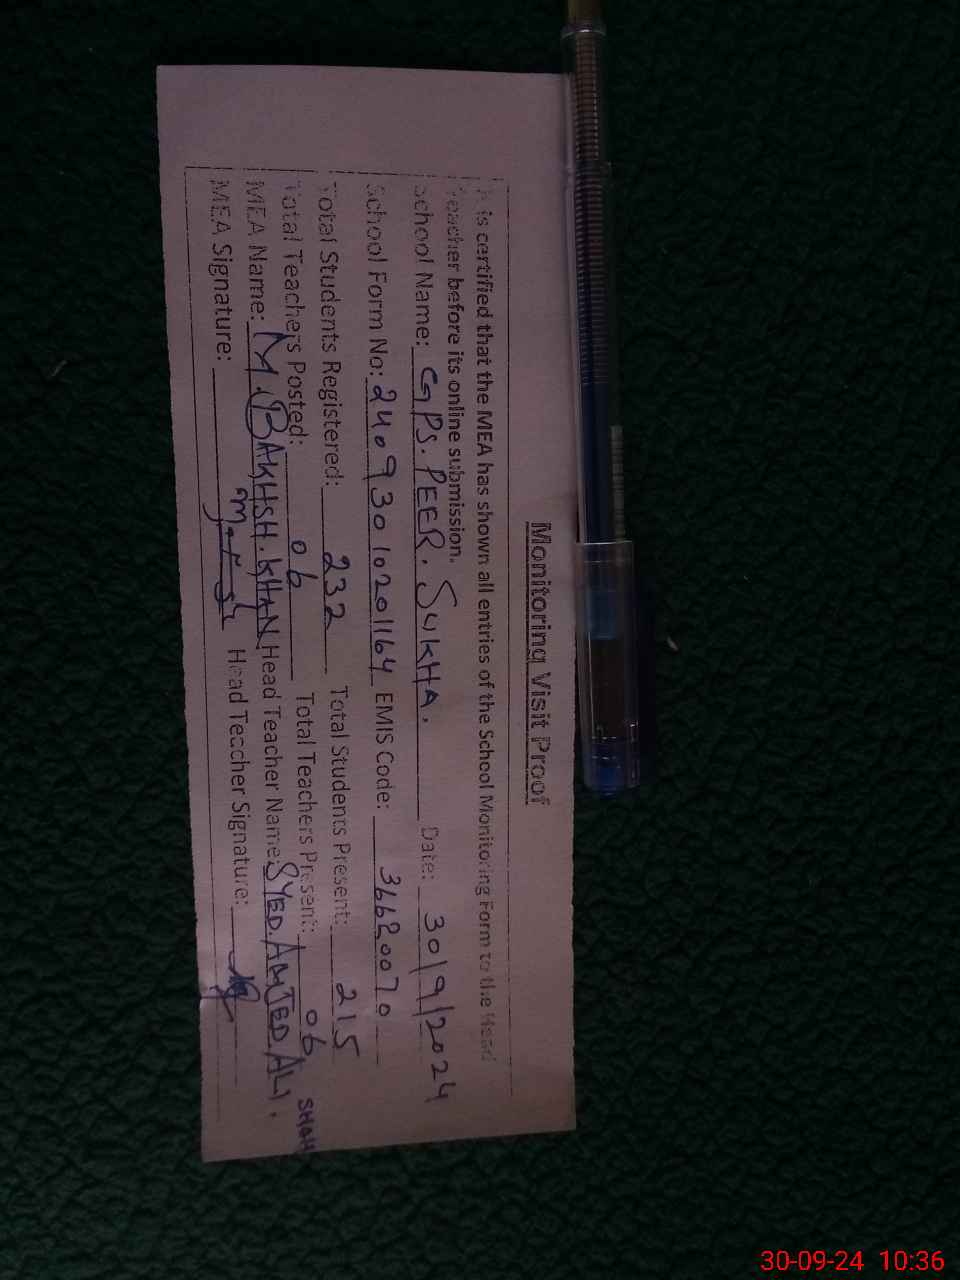 Monitoring Visit Proof
It is certified that the MEA has shown all entries of the School Monitoring Form to the Head
Teacher before its online submission.
School Name: GPS. PEER. SUKHA. Date: 30/9/2024
School Form No: 24093010201164 EMIS Code: 36620070
Total Students Registered: 232 Total Students Present: 215
Total Teachers Posted: 06 Total Teachers Present: 06
MEA Name: M. BAKHSH. KHAN Head Teacher Name: SYED. AMJED. ALI. SHAH
MEA Signature: Head Teacher Signature:
30-09-24 10:36